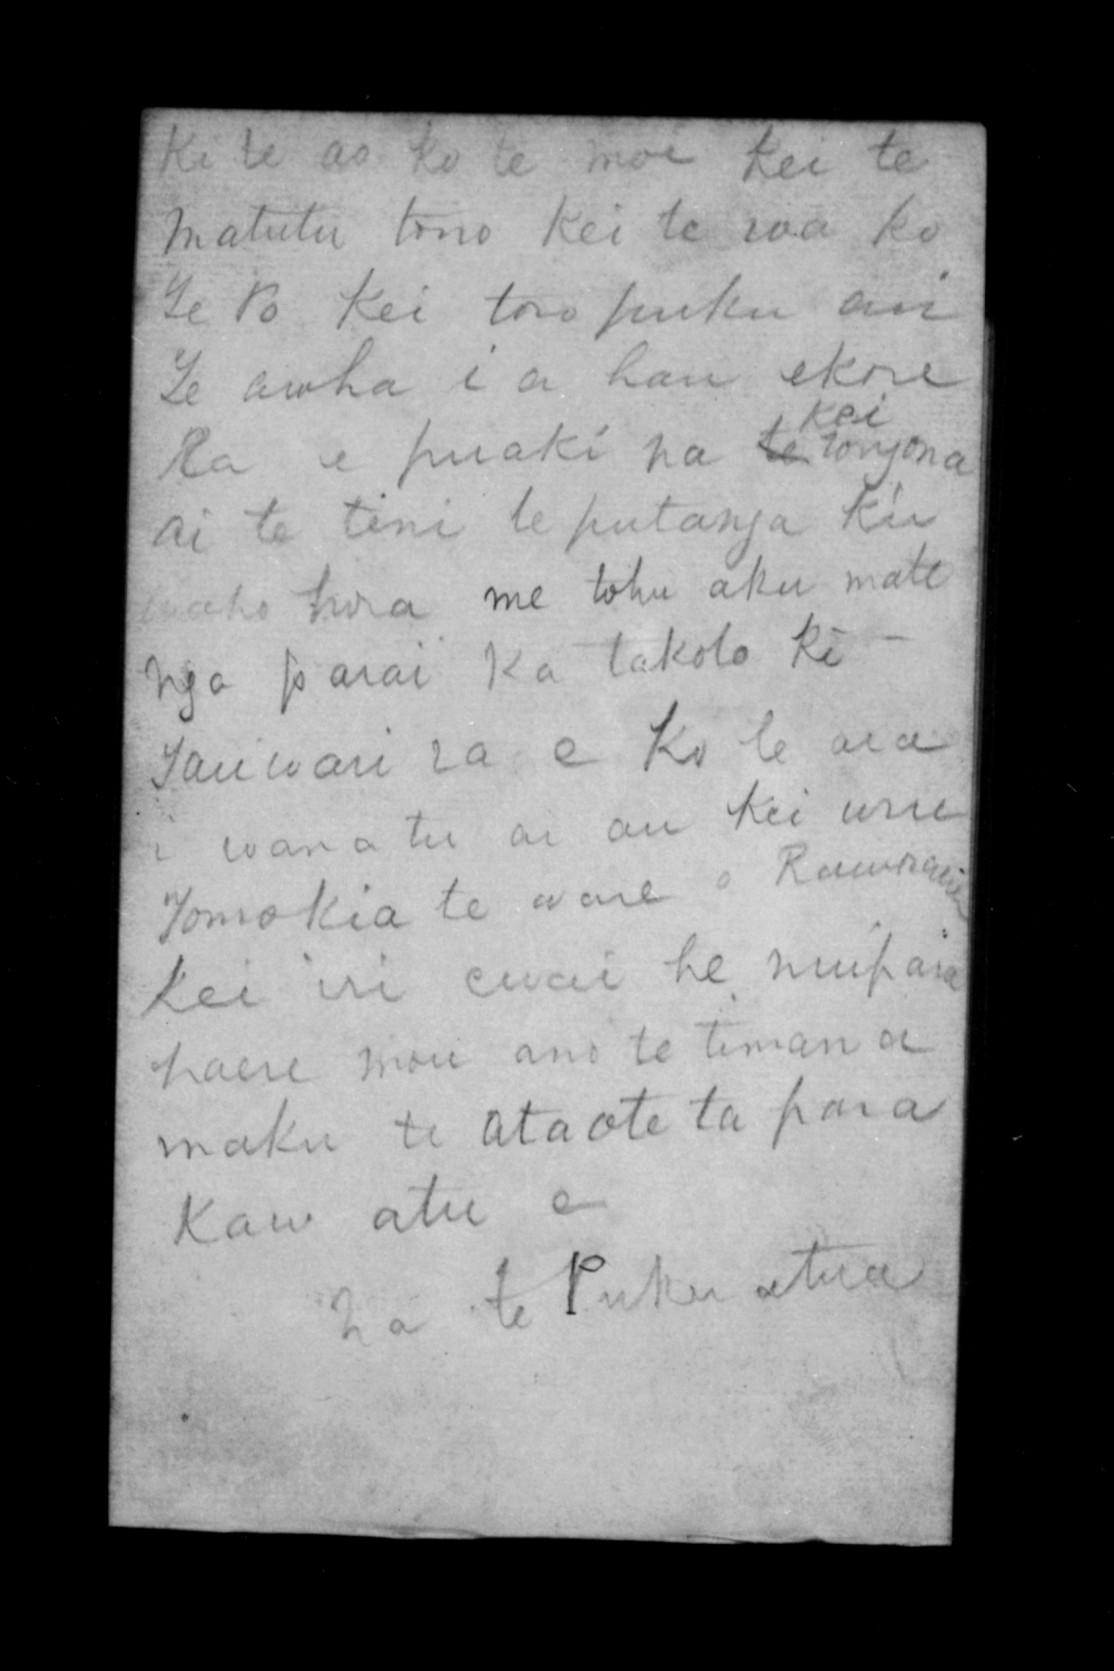 Ki te ao ko te moe kei te
Matutu tono Kei te roa ko
Te Po Kei toro puku ai
Te awha i a hau ekore
Ra e puaki na te kei rongona
ai te tini te putanga Kii
waho hora me tohu aku mate
nga parai ka takoto ki -
Taiwari ra e Ko te ara
i wanatu ai au kei uru
Tomokia te ware o
Kei iri ewai he
haere mou ano te timana
maku te Ataote ta para
Kaw atu e
Na te Pukuatua